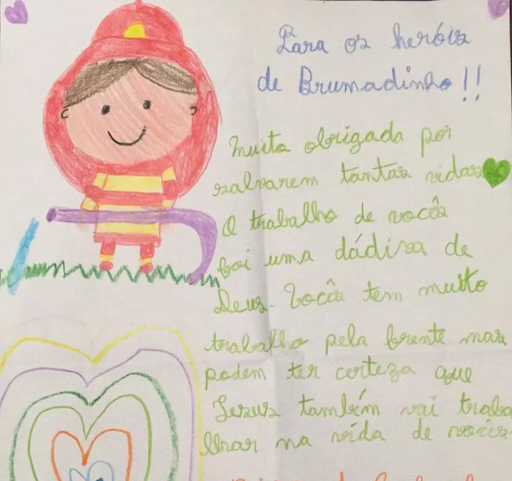 Para os heróis
de Brumadinho!!
Muita obrigada por
salvarem tantas vidas
O trabalho de vocês
foi uma dádiva de
Deus. Vocês tem muito
trabalho pela frente mas
podem ter certeza que
Jesus também vai traba
lhar na vida de vocês.